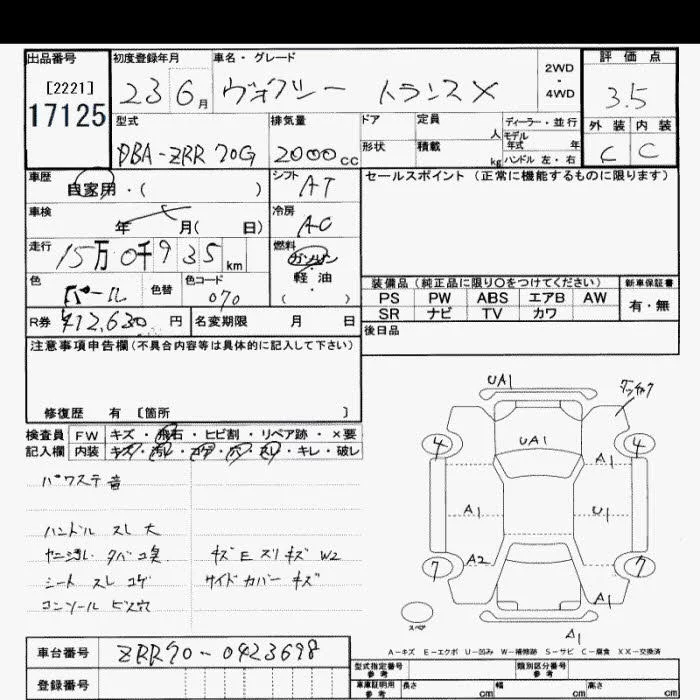 出品番号 初度登録年月 車名・グレード 2WD 評価点
[2221] 23 6月 ヴォクシー トランスX ・ 3.5
17125 4WD
型式 排気量 ドア 定員 人 ディーラー・並行 外装 内装
DBA-ZRR70G 2000cc 形状 積載 kg モデル年式 年 C C
ハンドル 左・右
車歴 自家用・( ) シフト AT セールスポイント (正常に機能するものに限ります)
車検 年 月( 日) 冷房 AC
走行 15万0千935km 燃料 ガソリン
軽・油
( )
色 パール 色替 色コード 070 装備品 (純正品に限り〇をつけてください) 新車保証書
PS PW ABS エアB AW 有・無
SR ナビ TV カワ
R券 ¥12,630円 名変期限 月 日 後日品
注意事項申告欄(不具合内容等は具体的に記入して下さい)
修復歴 有 [箇所 ]
検査員 FW キズ・飛石・ヒビ割・リペア跡・×要
記入欄 内装 キズ・汚レ・コゲ・穴・スレ・キレ・破レ
パワステ 音
ハンドル スレ 大
ヤニ汚レ タバコ臭 キズ E スリキズ W2
シート スレ コゲ サイドカバー キズ
コンソール ビス穴
UA1
UA1
4 4
A1
A1 U1
A2
7 7
A1
スペア A1
A-キズ E-エクボ U-凹み W-補修跡 S-サビ C-腐食 XX-交換済
車台番号 ZRR70-0423698
登録番号
型式指定番号 参考 類別区分番号 参考
車庫証明用 参考 長さ cm 幅 cm 高さ cm